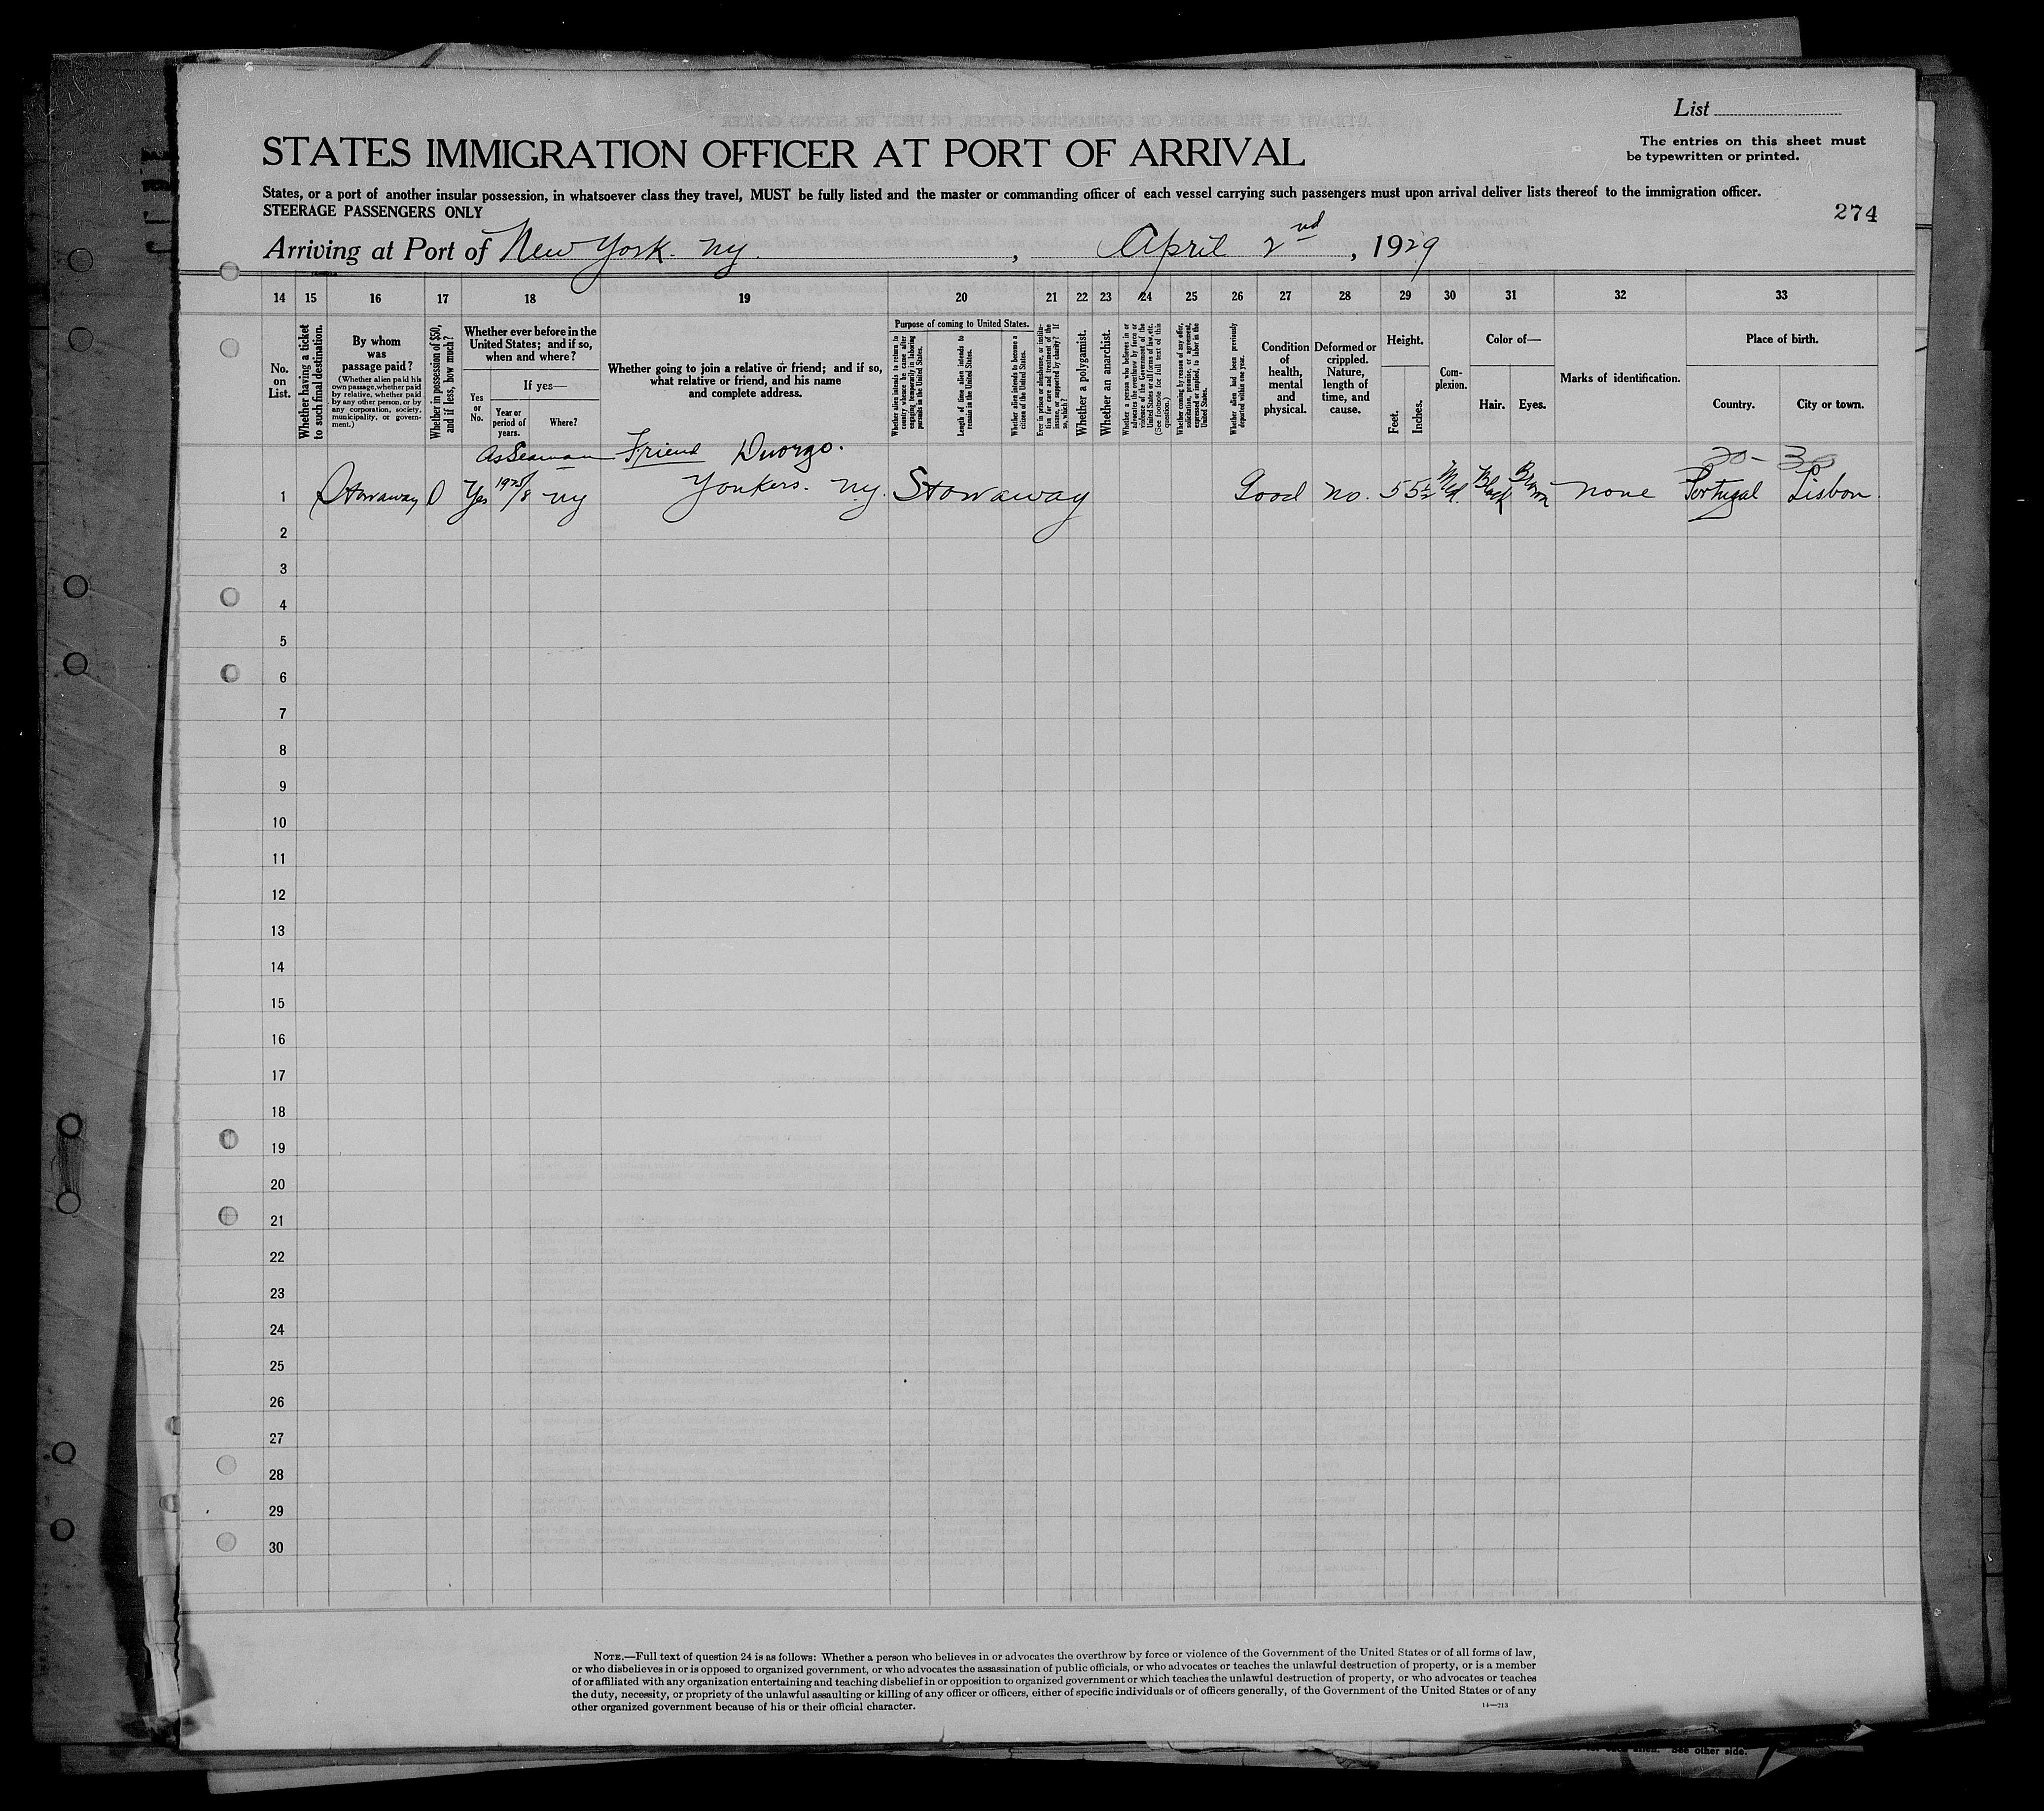 List
STATES IMMIGRATION OFFICER AT PORT OF ARRIVAL
The entries on this sheet must
be typewritten or printed.
States, or a port of another insular possession, in whatsoever class they travel, MUST be fully listed and the master or commanding officer of each vessel carrying such passengers must upon arrival deliver lists thereof to the immigration officer.
STEERAGE PASSENGERS ONLY
274
Arriving at Port of New York. NY. , April 2nd, 1929
14 15 16 17 18 19 20 21 22 23 24 25 26 27 28 29 30 31 32 33
No. on List.
Whether having a ticket to such final destination.
By whom was passage paid?
(Whether alien paid his own passage, whether paid by relative, whether paid by any other person, or by any corporation, society, municipality, or government.)
Whether in possession of $50, and if less, how much?
Whether ever before in the United States; and if so, when and where?
Yes or No.
If yes—
Year or period of years.
Where?
Whether going to join a relative or friend; and if so, what relative or friend, and his name and complete address.
Purpose of coming to United States.
Whether alien intends to return to country whence he came after engaging temporarily in laboring pursuits in the United States.
Length of time alien intends to remain in the United States.
Whether alien intends to become a citizen of the United States.
Ever in prison or almshouse, or institution for care and treatment of the insane, or supported by charity? If so, which?
Whether a polygamist.
Whether an anarchist.
Whether a person who believes in or advocates the overthrow by force or violence of the Government of the United States or all forms of law, etc. (See footnote for full text of this question.)
Whether coming by reason of any offer, solicitation, promise, or agreement, expressed or implied, to labor in the United States.
Whether alien had been previously deported within one year.
Condition of health, mental and physical.
Deformed or crippled. Nature, length of time, and cause.
Height.
Feet.
Inches.
Complexion.
Color of—
Hair.
Eyes.
Marks of identification.
Place of birth.
Country.
City or town.
As Seaman Friend 20-30
1 Stowaway 0 Yes 1925/8 NY Yonkers. N.Y. Stowaway Good No. 5 5½ Md. Black Brown None Portugal Lisbon.
2
3
4
5
6
7
8
9
10
11
12
13
14
15
16
17
18
19
20
21
22
23
24
25
26
27
28
29
30
NOTE.—Full text of question 24 is as follows: Whether a person who believes in or advocates the overthrow by force or violence of the Government of the United States or of all forms of law,
or who disbelieves in or is opposed to organized government, or who advocates the assassination of public officials, or who advocates or teaches the unlawful destruction of property, or is a member
of or affiliated with any organization entertaining and teaching disbelief in or opposition to organized government or which teaches the unlawful destruction of property, or who advocates or teaches
the duty, necessity, or propriety of the unlawful assaulting or killing of any officer or officers, either of specific individuals or of officers generally, of the Government of the United States or of any
other organized government because of his or their official character.
14—213
See other side.